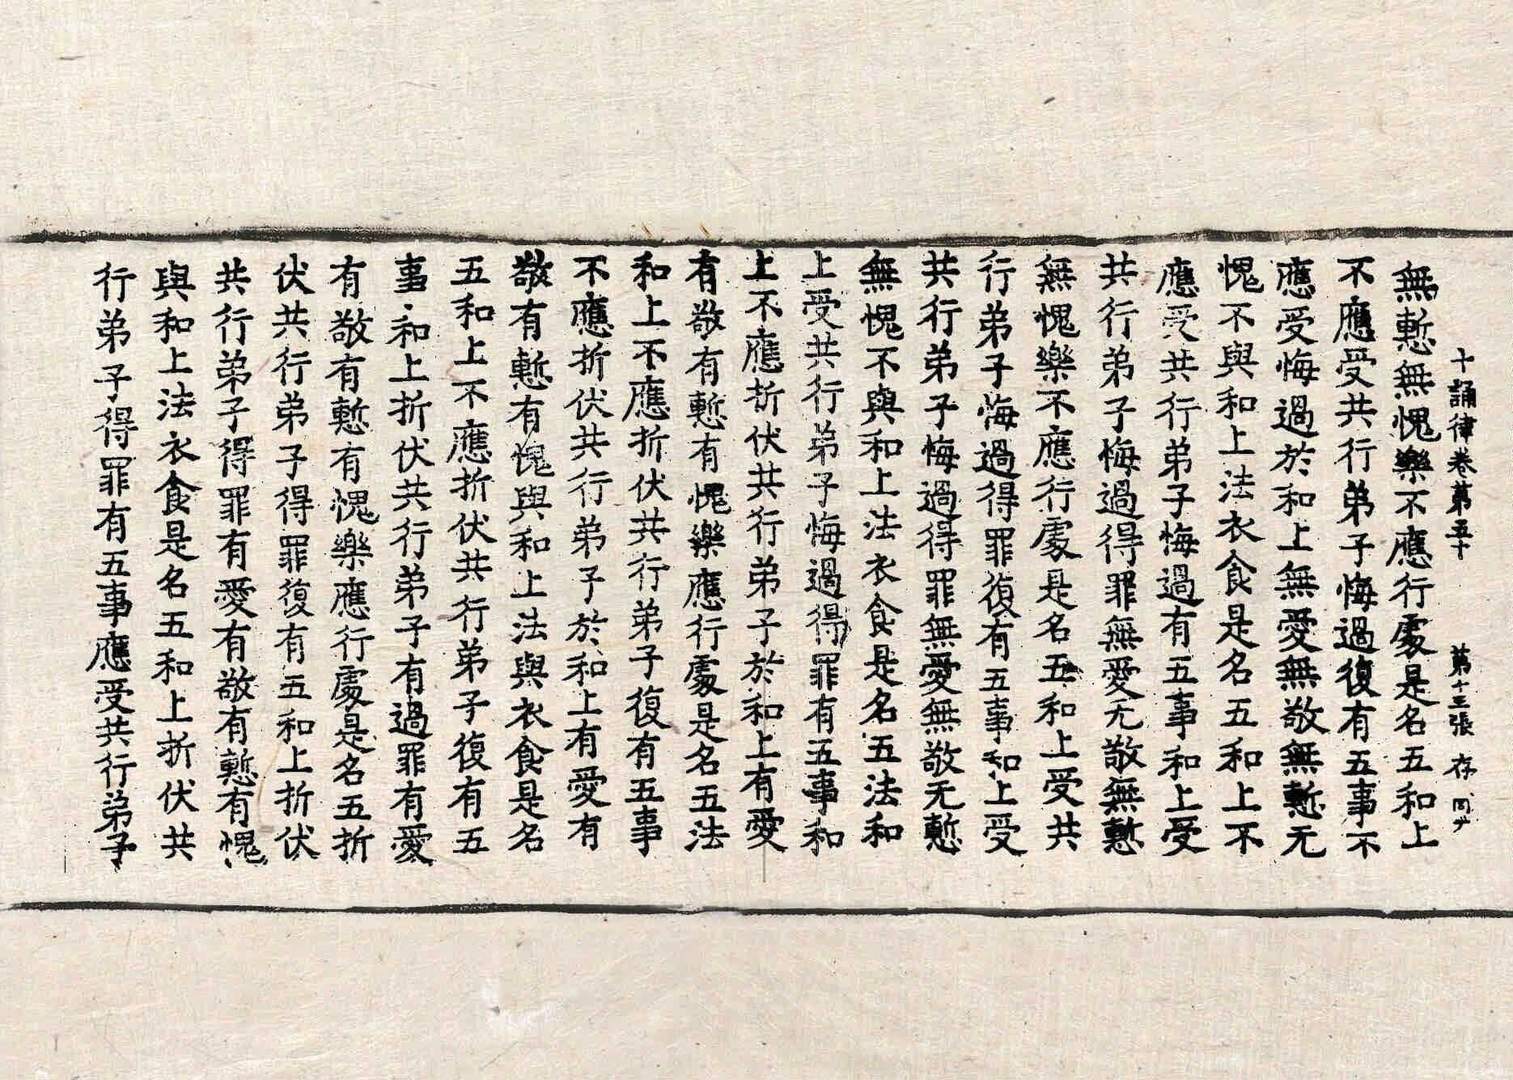 十誦律卷第五十 第十三張 存
無慙無愧樂不應行處是名五和上
不應受共行弟子悔過復有五事不
應受悔過於和上無愛無敬無慙无
愧不與和上法衣食是名五和上不
應受共行弟子悔過有五事和上受
共行弟子悔過得罪無愛无敬無慙
無愧樂不應行處是名五和上受共
行弟子悔過得罪復有五事和上受
共行弟子悔過得罪無愛無敬无慙
無愧不與和上法衣食是名五法和
上受共行弟子悔過得罪有五事和
上不應折伏共行弟子於和上有愛
有敬有慙有愧樂應行處是名五法
和上不應折伏共行弟子復有五事
不應折伏共行弟子於和上有愛有
敬有慙有愧與和上法與衣食是名
五和上不應折伏共行弟子復有五
事和上折伏共行弟子有過罪有愛
有敬有慙有愧樂應行處是名五折
伏共行弟子得罪復有五和上折伏
共行弟子得罪有愛有敬有慙有愧
與和上法衣食是名五和上折伏共
行弟子得罪有五事應受共行弟子